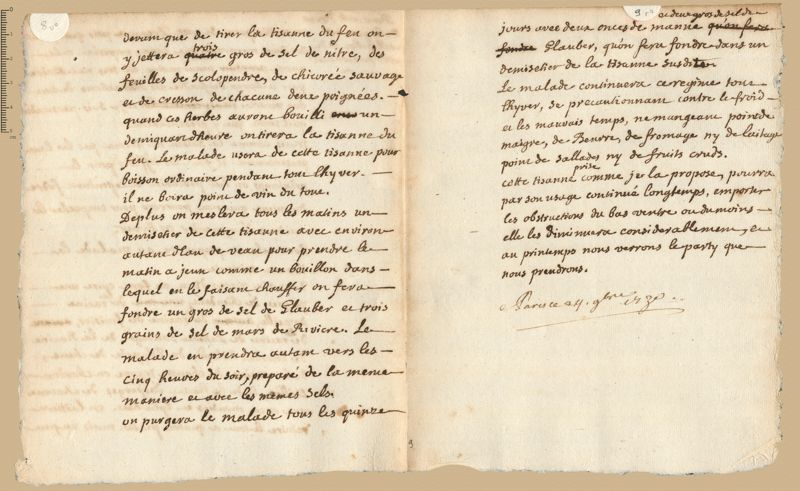 8.
devant que de tirer la tisanne du feu on
y jettera trois gros de sel de nitre, des
feuilles de scolopendre, de chicorée sauvage
et de cresson de chacune deux poignées.
quand ces herbes auront bouilli un
demi quart dheure on tirera la tisanne du
feu. Le malade usera de cette tisanne pour
boisson ordinaire pendant tout lhyver.
il ne boira point de vin du tout.
Deplus on meslera tous les matins un
demisetier de cette tisanne avec environ
autant d'eau de veau pour prendre le
matin a jeun comme un bouillon dans
lequel en le faisant chauffer on fera
fondre un gros de sel de Glauber et trois
grains de sel de mars de Riviere. Le
malade en prendra autant vers les
cinq heures du soir, preparé de la meme
maniere et avec les memes sels.
on purgera le malade tous les quinze
9
ou deux gros de sel de
jours avec deux onces de manne qu'on fera
fondre Glauber, qu'on fera fondre dans un
demisetier de la tisanne susdite
Le malade continuera ce regime tout
lhyver, se precautionnant contre le froid
et les mauvais temps, ne mangeant point de
maigre, de Beurre, de fromage ny de laitage
point de sallades ny de fruits cruds.
cette tisanne prise comme je la propose, pourra
par son usage continué longtemps, emporter
les obstructions du bas ventre ou du moins
elle les diminuera considerablement, et
au printemps nous verrons le party que
nous prendrons.
a Paris ce 24. 9bre